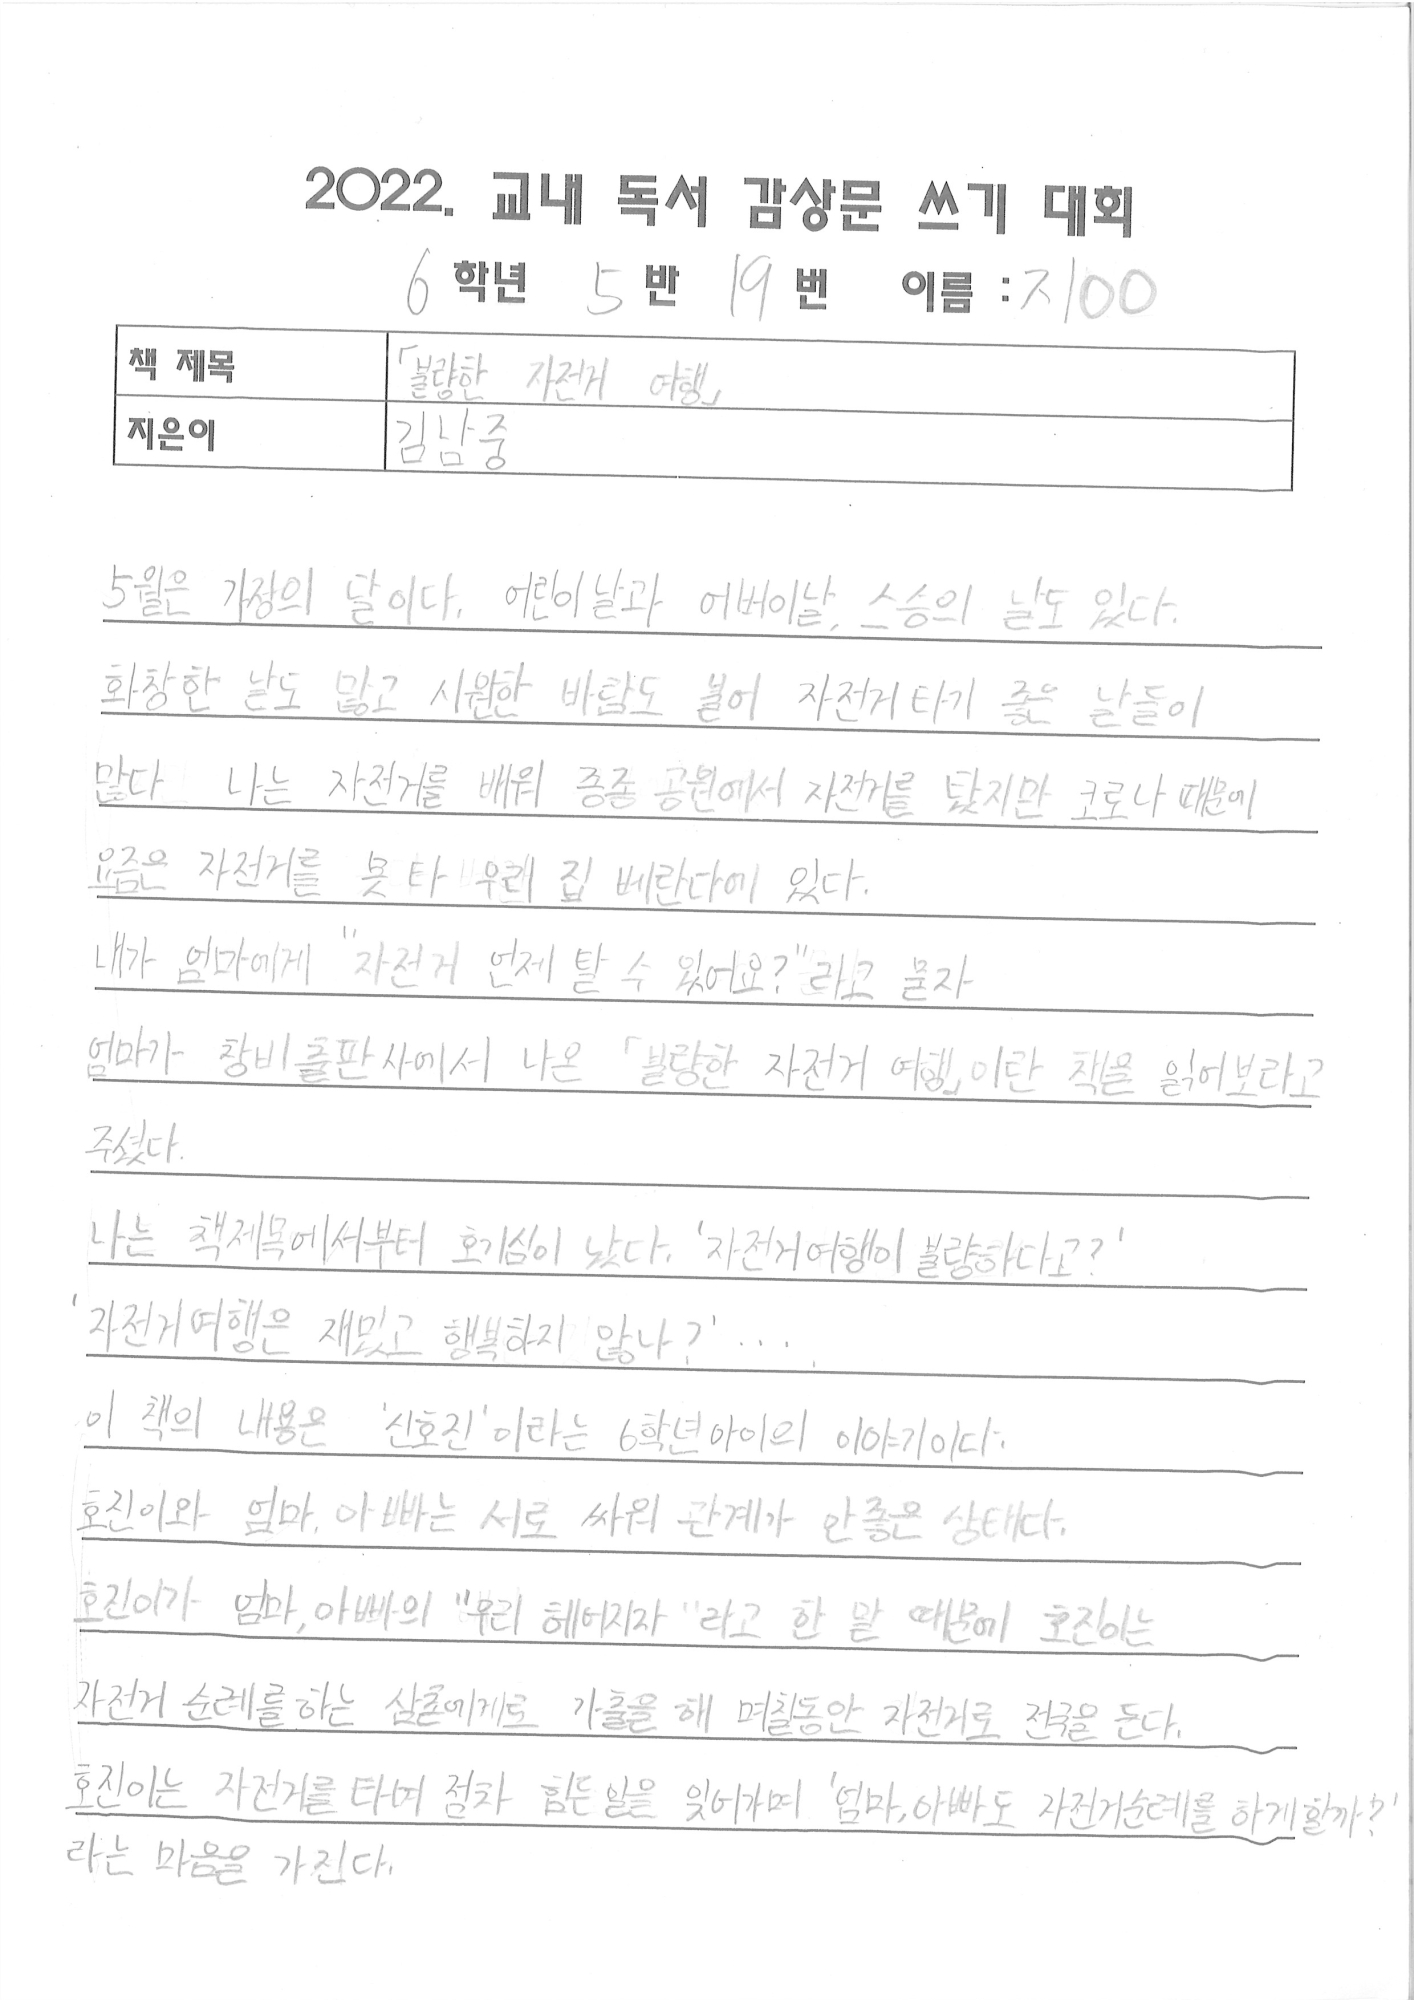 2022. 교내 독서 감상문 쓰기 대회
6 학년 5 반 19 번 이름 : 지00
책 제목 「불량한 자전거 여행」
지은이 김남중
5월은 가정의 달이다. 어린이날과 어버이날, 스승의 날도 있다.
화창한 날도 많고 시원한 바람도 불어 자전거타기 좋은 날들이
많다 나는 자전거를 배워 종종 공원에서 자전거를 탔지만 코로나 때문에
요즘은 자전거를 못 타 우리 집 베란다에 있다.
내가 엄마에게 "자전거 언제 탈 수 있어요?"라고 묻자
엄마가 창비출판사에서 나온 「불량한 자전거 여행」이란 책을 읽어보라고
주셨다.
나는 책제목에서부터 호기심이 났다. '자전거여행이 불량하다고?'
'자전거여행은 재밌고 행복하지 않나?' ....
이 책의 내용은 '신호진'이라는 6학년아이의 이야기이다.
호진이와 엄마, 아빠는 서로 싸워 관계가 안좋은 상태다.
호진이가 엄마, 아빠의 "우리 헤어지자"라고 한 말 때문에 호진이는
자전거 순례를하는 삼촌에게로 가출을 해 며칠동안 자전거로 전국을 돈다.
호진이는 자전거를 타며 점차 힘든 일을 잊어가며 '엄마, 아빠도 자전거순례를 하게할까?'
라는 마음을 가진다.